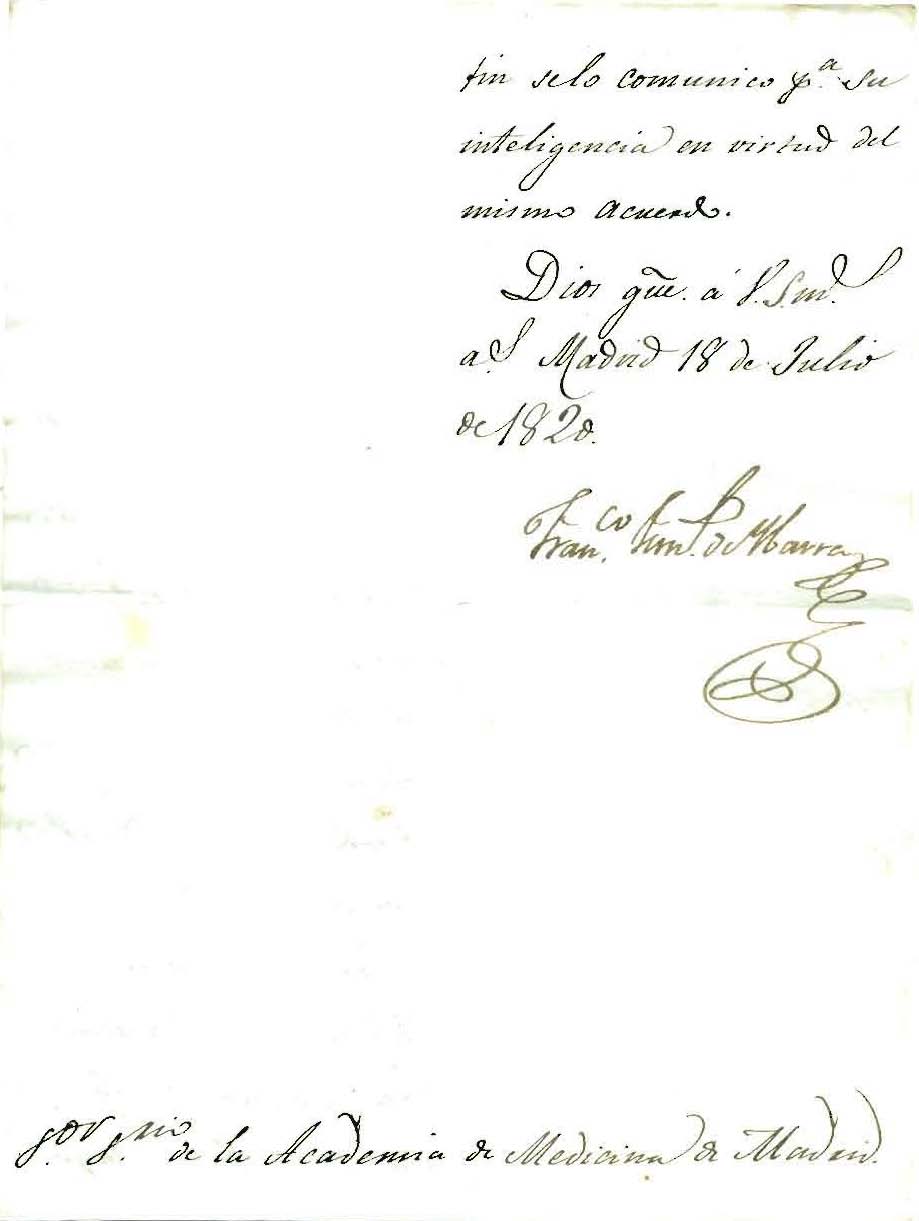 fin selo comunico p.ª su
inteligencia en virtud del
mismo acuerdo.
Dios gūe. á V.S. m.s
a.s Madrid 18 de Julio
de 1820.
Fran.co Fern.z de Ybarra
S.or S.rio de la Academia de Medicina de Madrid.